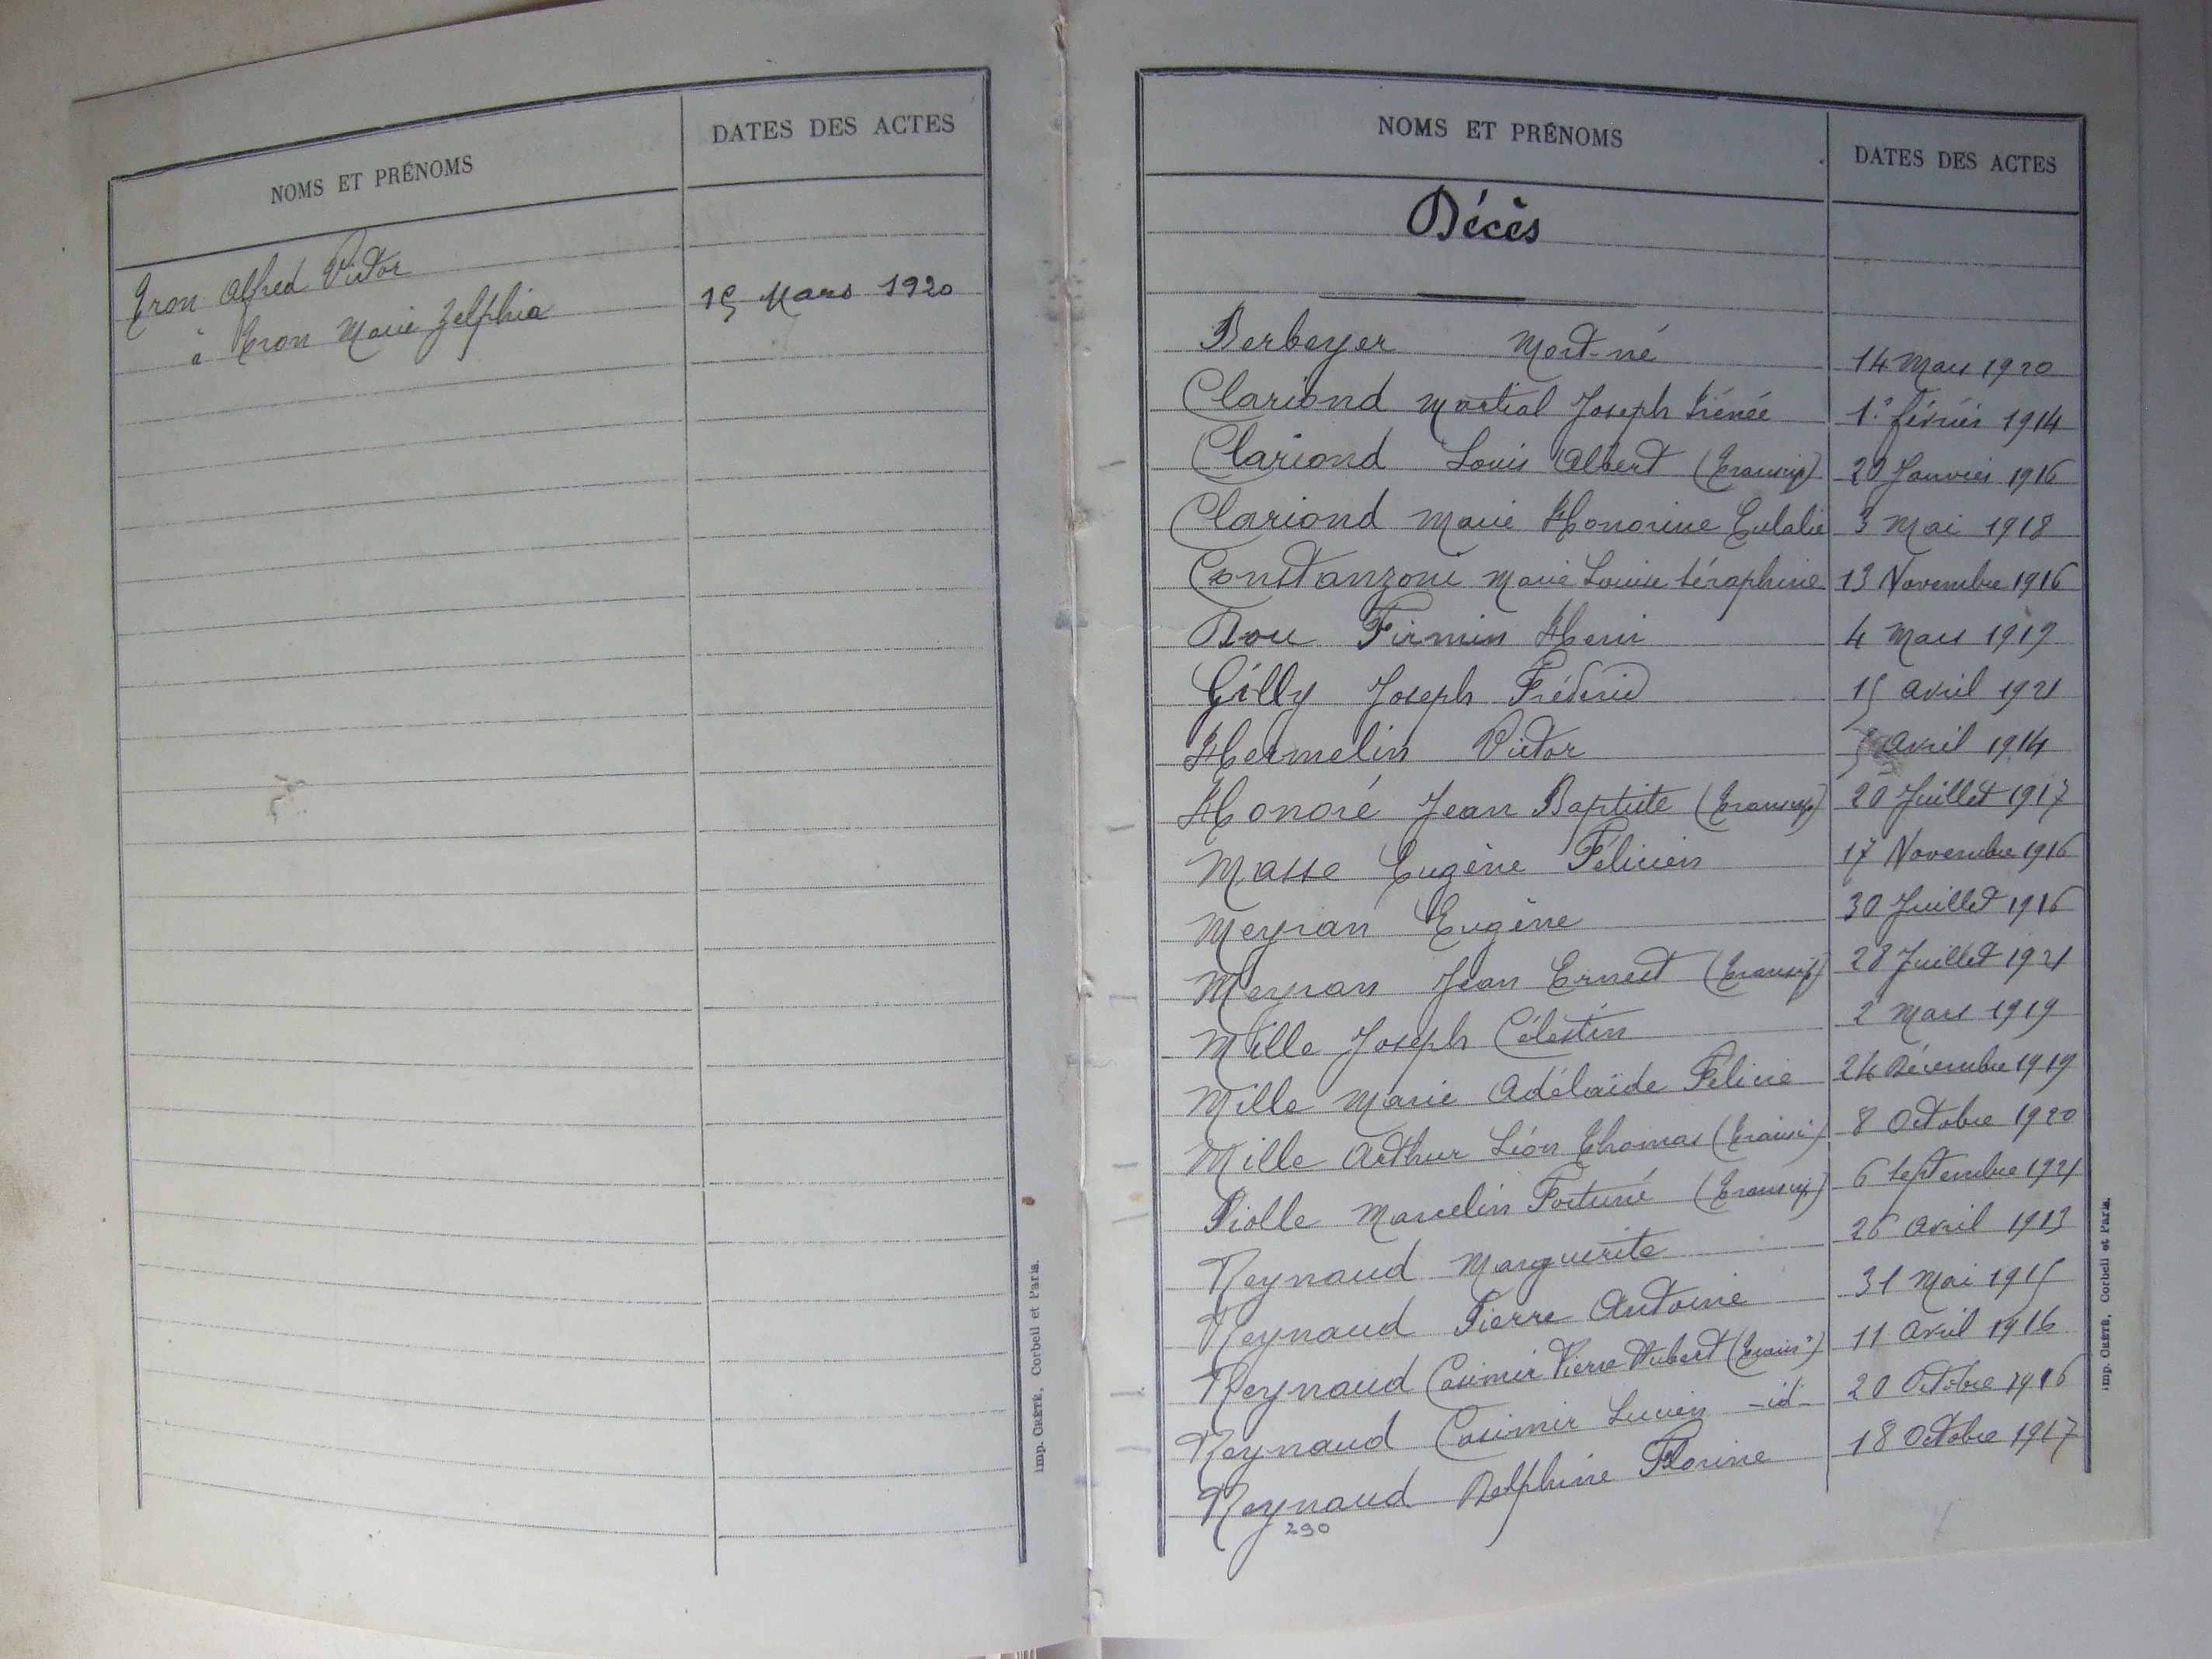 NOMS ET PRÉNOMS
DATES DES ACTES
Tron Alfred Victor
à Tron Marie Zelphia
15 Mars 1920
Imp. CRÉTÉ, Corbeil et Paris.
NOMS ET PRÉNOMS
DATES DES ACTES
Décès
Berbeyer Mort-né 14 Mars 1920
Clariond Martial Joseph Irénée 1er février 1914
Clariond Louis Albert (Transcrip) 20 Janvier 1916
Clariond Marie Honorine Eulalie 3 Mai 1918
Constanzoni Marie Louise Séraphine 13 Novembre 1916
Dou Firmin Henri 4 Mars 1919
Gilly Joseph Frédéric 15 avril 1921
Hermelin Victor 5 avril 1914
Honoré Jean Baptiste (Transcrip) 20 Juillet 1917
Masse Eugène Félicien 17 Novembre 1916
Meyran Eugène 30 Juillet 1916
Meyran Jean Ernest (Transcrip) 28 Juillet 1921
Mille Joseph Célestin 2 Mars 1919
Mille Marie Adélaïde Félicie 24 Décembre 1919
Mille Arthur Léon Thomas (Transc) 8 Octobre 1920
Piolle Marcelin Fortuné (Transcrip) 6 Septembre 1921
Reynaud Marguerite 26 avril 1913
Reynaud Pierre Antoine 31 Mai 1915
Reynaud Casimir Pierre Hubert (Trans) 11 Avril 1916
Reynaud Casimir Lucien -id- 20 Octobre 1916
Reynaud Delphine Florine 18 Octobre 1917
290
Imp. CRÉTÉ, Corbeil et Paris.